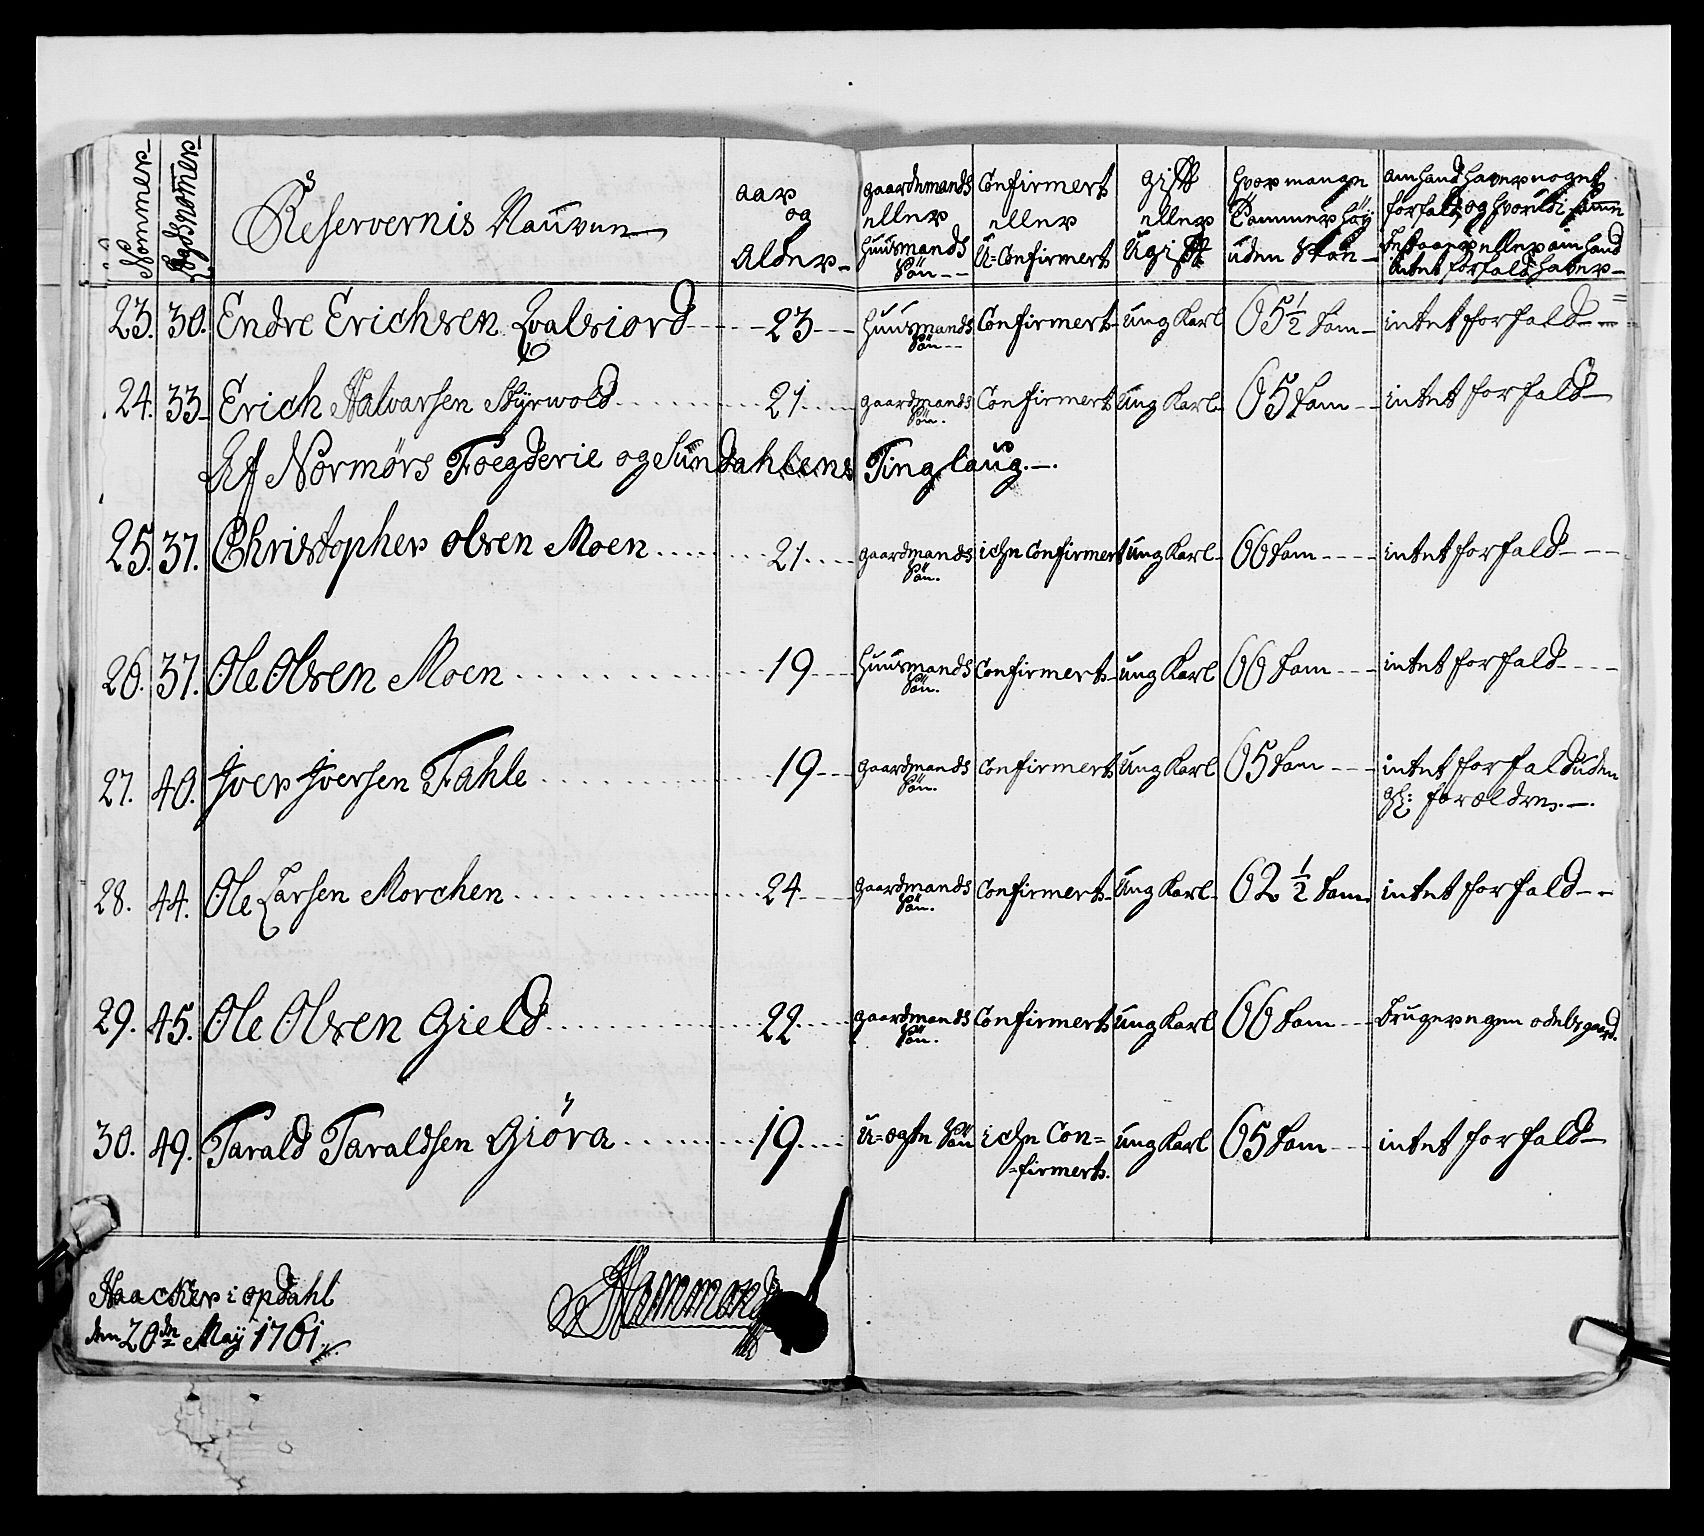 Nommer Lægdsnommer Reservernis Nauvne aar og Alder gaardmands eller huusmands Sön Confirmert eller U=Confirmert gift eller Ugift hvor mange Tommer höy uden Skoe om hand haver noget forfald, og hvorudi samme bestaaer eller om hand intet forfald haver
23. 30. Endre Erichsen Qvalsiord 23 huusmands Sön Confirmert ung Karl 65 1/2 tom intet forfald
24. 33 Erich Halvarsen Styrwold 21 gaardmands Sön. Confirmert Ung Karl 65 tom intet forfald
Af Normörs Foegderie og Sundahlens Tinglaug.
25. 37. Christopher Olsen Moen 21 gaardmands Sön. iche Confirmert ung Karl 66 tom intet forfald
26. 37. Ole Olsen Moen 19 huusmands Sön. Confirmert ung Karl 66 tom intet forfald
27. 40. Iver Iversen Fahle 19 gaardmands Sön. Confirmert Ung Karl 65 tom intet forfald uden
gl: forældre.
28. 44. Ole Larsen Morchen 24 gaardmands Sön. Confirmert Ung Karl 62 1/2 tom intet forfald
29. 45. Ole Olsen Gield 22 gaardmands Sön. Confirmert Ung Karl 66 tom bruger egen odels gaard.
30. 49. Tarald Taraldsen Giöra 19 u=ægte Sön iche Con=
=firmert. ung Karl 65 tom intet forfald
Haacker i opdahl
den 20de Maÿ 1761.
Hammond